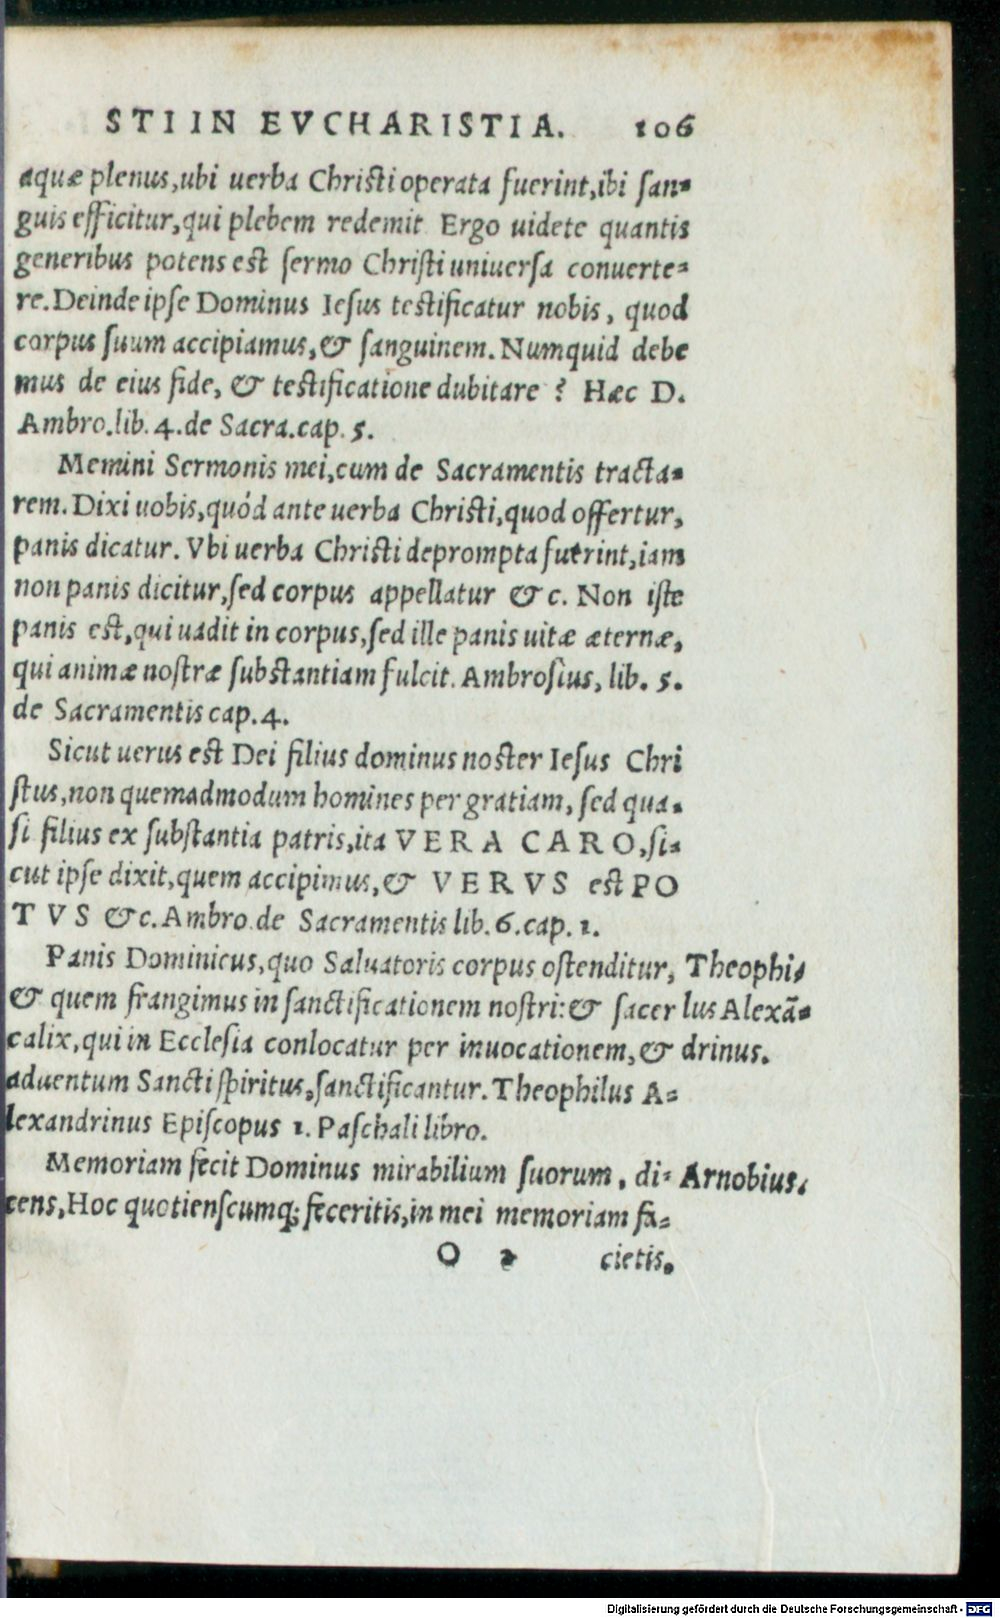 STI IN EVCHARISTIA. 106
aquæ plenus,ubi uerba Christi operata fuerint,ibi san-
guis efficitur,qui plebem redemit Ergo uidete quantis
generibus potens est sermo Christi uniuersa conuerte-
re.Deinde ipse Dominus Iesus testificatur nobis, quod
corpus suum accipiamus,& sanguinem.Numquid debe
mus de eius fide, & testificatione dubitare ? Hæc D.
Ambro.lib.4.de Sacra.cap.5.
Memini Sermonis mei,cum de Sacramentis tracta-
rem.Dixi uobis,quód ante uerba Christi,quod offertur,
panis dicatur. Vbi uerba Christi deprompta fuerint,iam
non panis dicitur,sed corpus appellatur &c. Non iste
panis est,qui uadit in corpus,sed ille panis uitæ æternæ,
qui animæ nostræ substantiam fulcit. Ambrosius, lib. 5.
de Sacramentis cap.4.
Sicut uerus est Dei filius dominus noster Iesus Chri
stus,non quemadmodum homines per gratiam, sed qua-
si filius ex substantia patris,ita VERA CARO,si-
cut ipse dixit,quem accipimus,& VERVS est PO
TVS &c.Ambro.de Sacramentis lib.6.cap.1.
Panis Dominicus,quo Saluatoris corpus ostenditur, Theophi-
& quem frangimus in sanctificationem nostri:& sacer lus Alexã-
calix,qui in Ecclesia conlocatur per inuocationem,& drinus.
aduentum Sancti spiritus,sanctificantur.Theophilus A-
lexandrinus Episcopus 1. Paschali libro.
Memoriam fecit Dominus mirabilium suorum, di- Arnobius.
cens,Hoc quotienscumq; feceritis,in mei memoriam fa-
O 2 cietis.
Digitalisierung gefördert durch die Deutsche Forschungsgemeinschaft - DFG